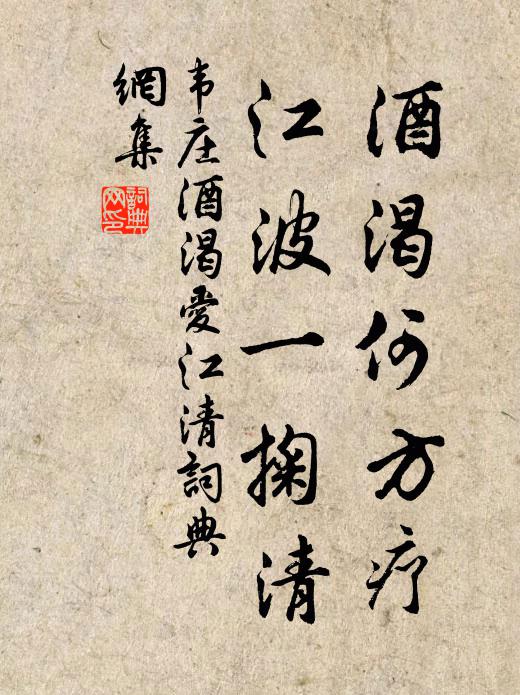 酒渴何方疗
江波一掬清
韦庄酒渴爱江清詞典
網集
詞典网印